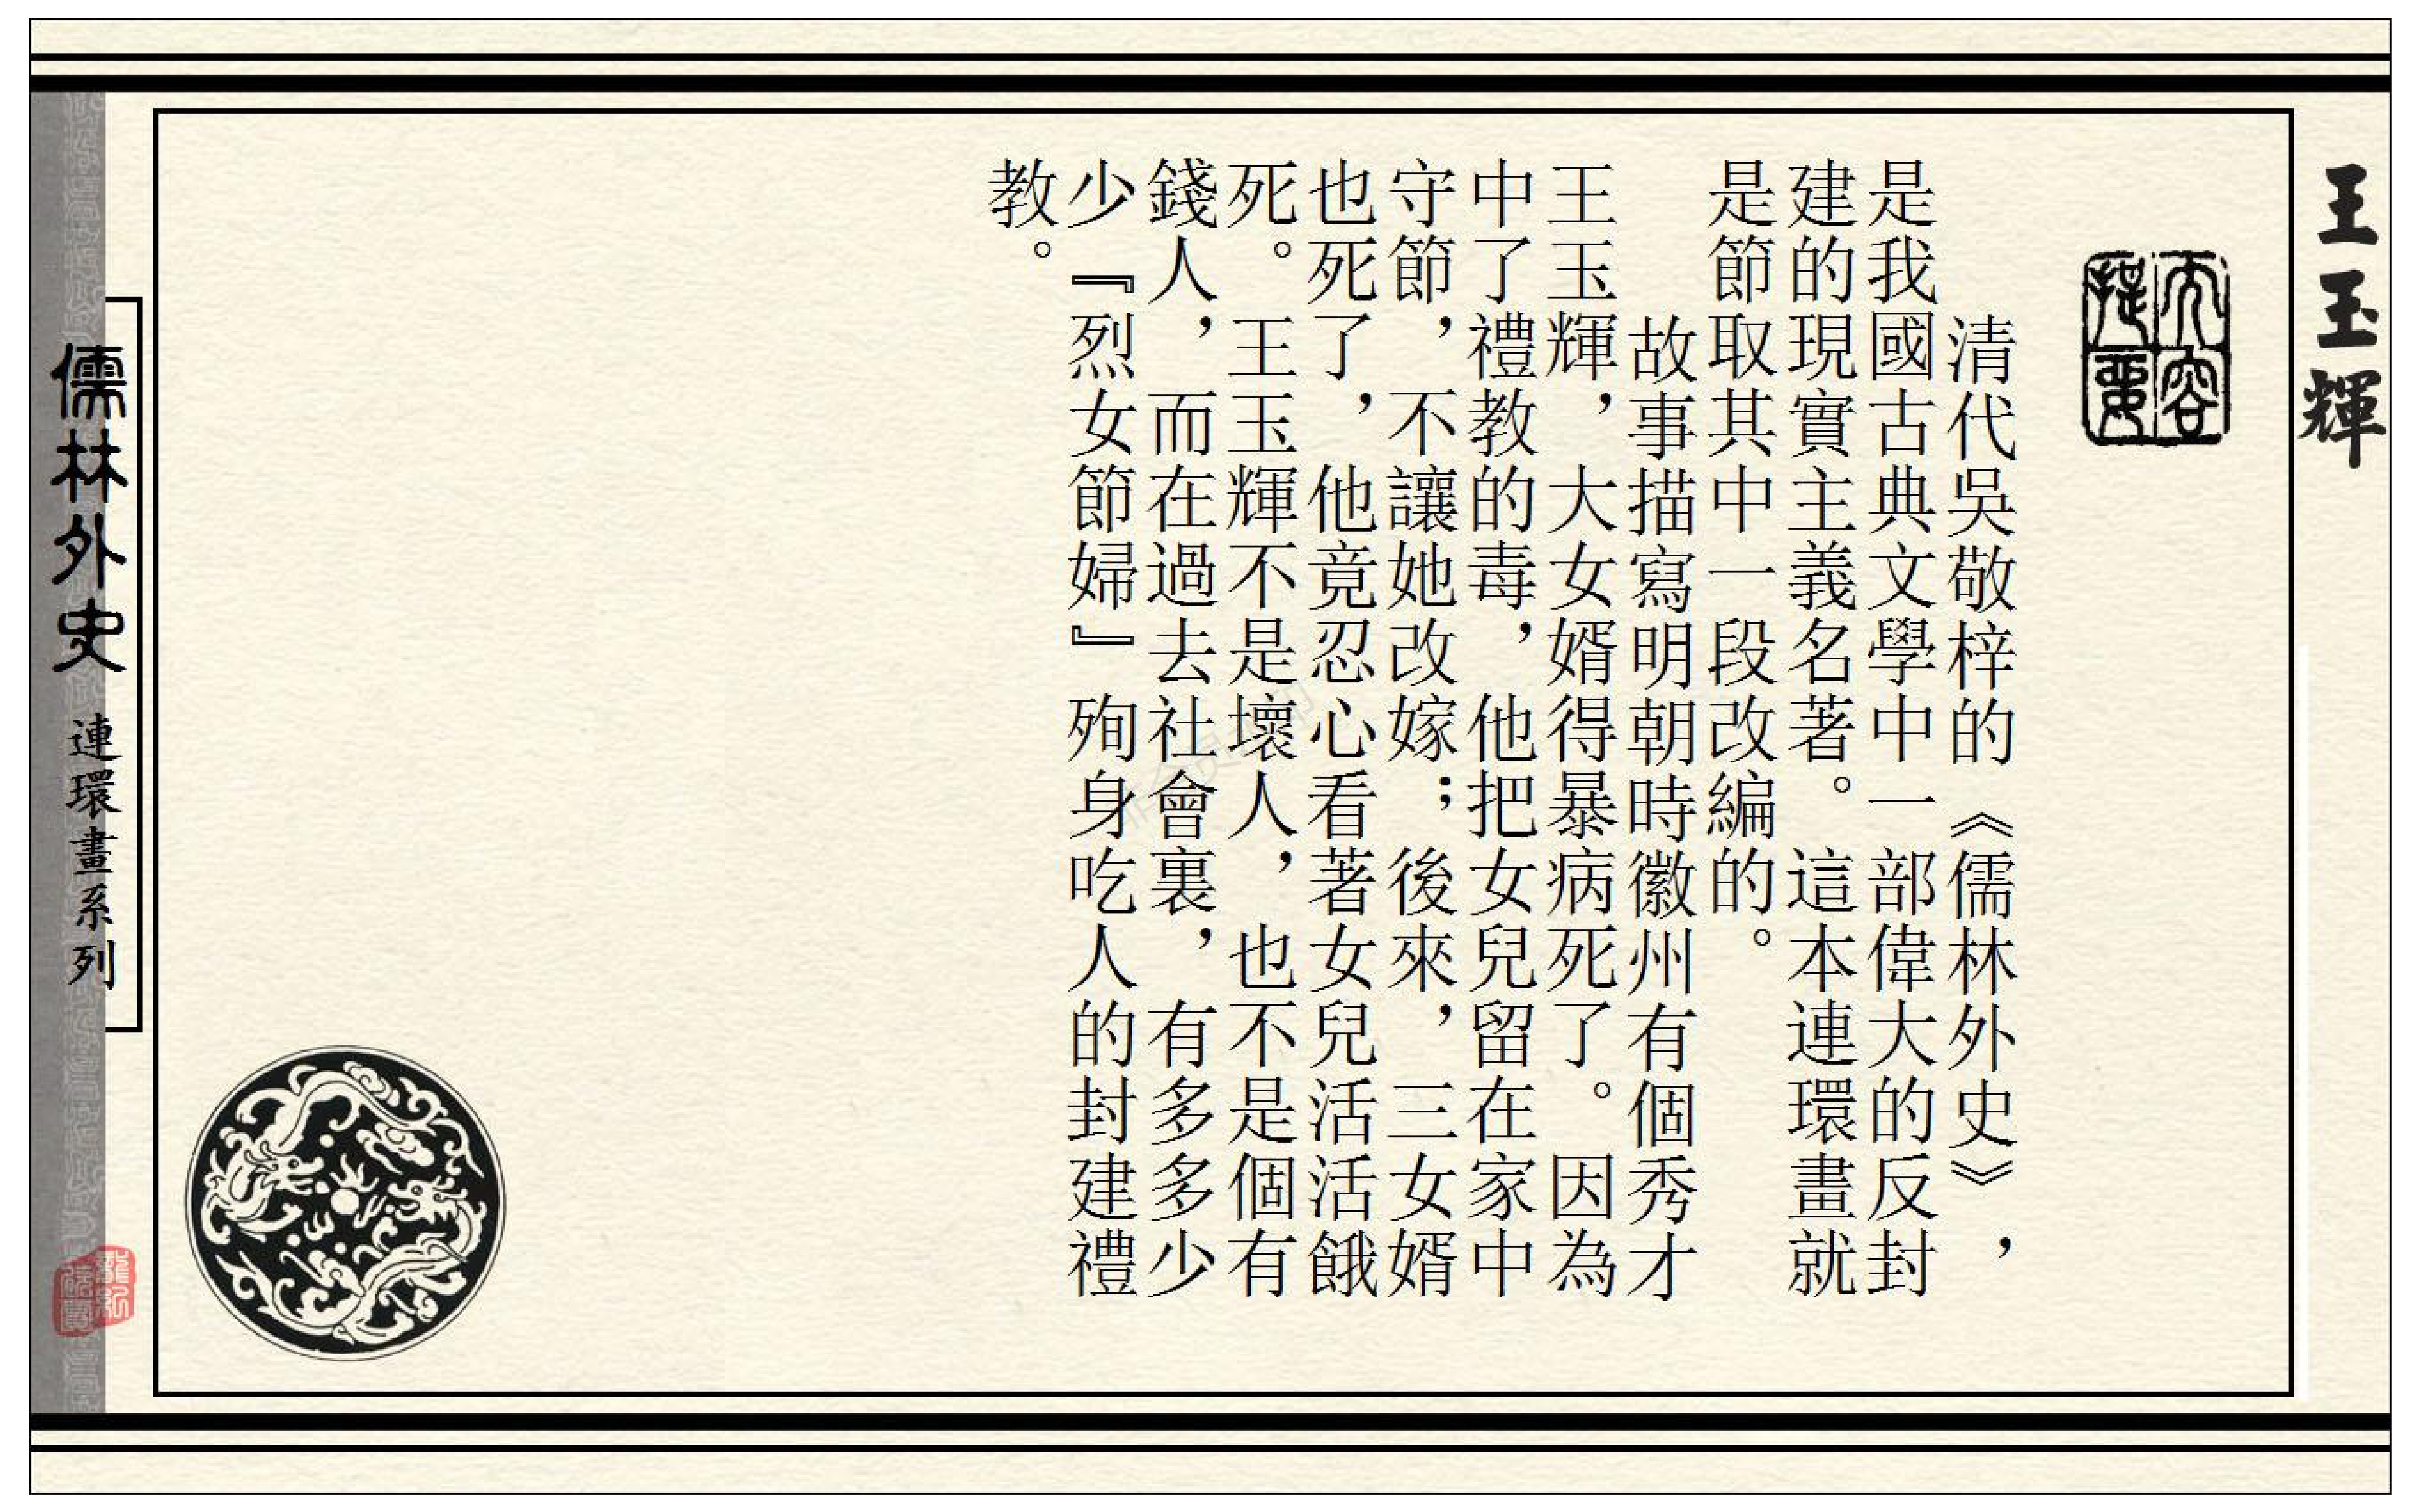 王玉輝
内容提要
清代吳敬梓的《儒林外史》，
是我國古典文學中一部偉大的反封
建的現實主義名著。這本連環畫就
是節取其中一段改編的。
故事描寫明朝時徽州有個秀才
王玉輝，大女婿得暴病死了。因為
中了禮教的毒，他把女兒留在家中
守節，不讓她改嫁；後來，三女婿
也死了，他竟忍心看著女兒活活餓
死。王玉輝不是壞人，也不是個有
錢人，而在過去社會裏，有多多少
少『烈女節婦』殉身吃人的封建禮
教。
儒林外史
連環畫系列